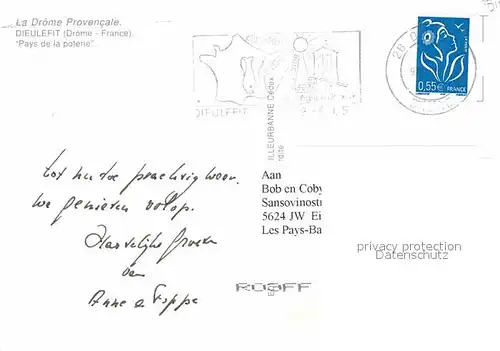 La Drôme Provençale.
DIEULEFIT (Drôme - France).
"Pays de la poterie"
DIEULEFIT
0,55€ FRANCE
ILLEURBANNE Cedex
Tot nu toe prachtig weer.
We genieten volop.
Hartelijke Groeten
van
Anne & Foppe
Aan
Bob en Coby
Sansovinostr
5624 JW Ei
Les Pays-Ba
privacy protection
Datenschutz